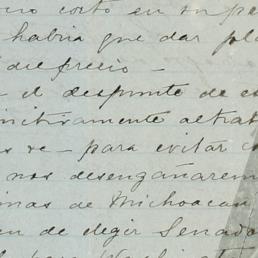 esto en su pe
habria que dar pla
desprecio —
— el despunte de es
initivamente al trat
as se — para evitar c
nos desengañarem
inas de Michoacan
en de elegir Senado